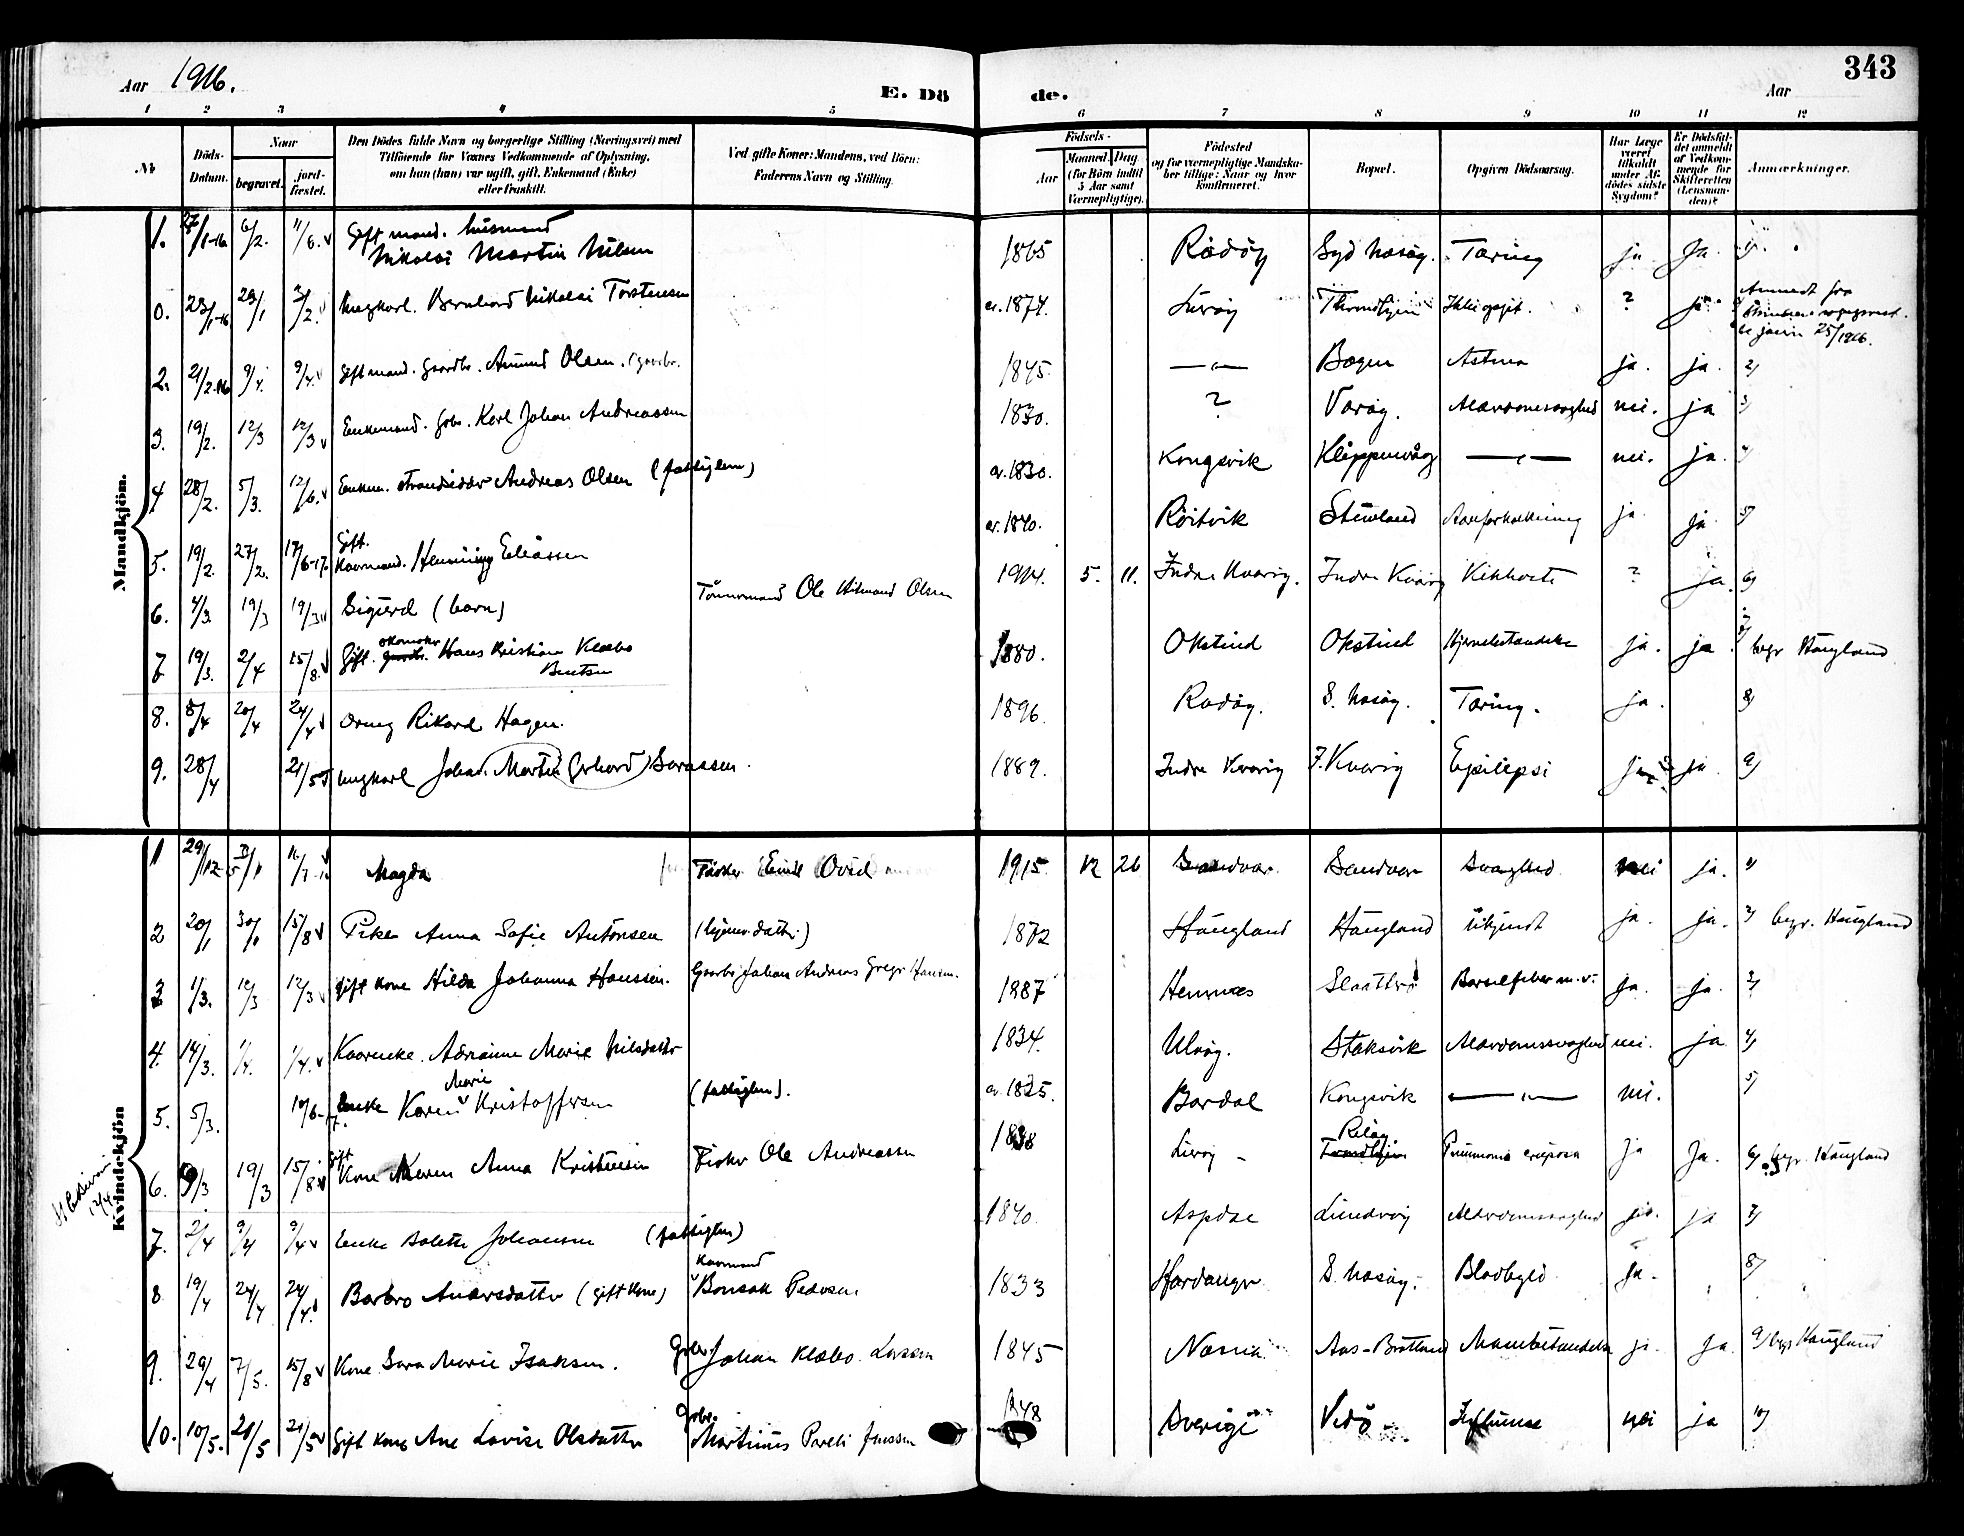 343
Aar 1916.
E. Dö
de.
Aar
1 2 3 4 5 6 7 8 9 10 11 12
No
Döds-Datum.
Naar
begravet.
jord-fæstet.
Den Dödes fulde Navn og borgerlige Stilling (Næringsvei) med
Tilföiende for Voxnes Vedkommende af Oplysning,
om han (hun) var ugift, gift, Enkemand (Enke)
eller fraskilt.
Ved gifte Koner: Mandens, ved Börn:
Faderens Navn og Stilling.
Födsels-
Aar
Maaned. Dag
(for Börn indtil
5 Aar samt
Værnepligtige).
Födested
og for værnepligtige Mandska-
ber tillige: Naar og hvor
konfirmeret.
Bopæl.
Opgiven Dödsaarsag.
Har Læge
været
tilkaldt
under Af-
dödes sidste
Sygdom?
Er Dödsfal-
det anmeldt
af Vedkom-
mende for
Skifteretten
(Lensman-
den)?
Anmærkninger.
Mandkjön.
1. 6/2. 11/6. Gift mand. husmand
Nikolai Martin Nilsen 1865 Rødøy Syd Nesøy. Tæring ja Ja 1)
0. 23/1-16 29/1 3/2. Ungkarl. Bernhard Nikolai Torstensen ca. 1874. Lurøy Throndhjem Ikke opgit. ? ja
2. 21/2.16 9/4. 9/4. Gift mand. Gaardbr. Amund Olsen. 1845 —„— Bogen Astma ja. ja. 2)
3. 19/2. 12/3 12/3 Enkemand. Gbr. Karl Johan Andreassen 1830. ? Varøy. Alderdomssvaghed nei. ja 3)
4 28/2. 5/3. 12/6. Enkem. strandsidder Andreas Olsen (fattiglem) ca. 1830. Kongsvik Klippenvåg —„— nei. ja.
5. 19/2. 27/2. 17/6-17. Gift.
Kaarmand. Henning Eliassen ca. 1840. Røitvik Stuvland ja. ja. 5)
6. 4/3. 19/3 19/3 Sigurd (barn) Tømmermand Ole Hilmand Olsen 1914. 5. 11. Indre Kvarøy. Indre Kvarøy Kikhoste ? ja. 6)
7 19/3. 2/4 15/8. Gift. Hans Kristian Klæbo
Bentsen 1880. Okstind Okstind Hjernebetændelse ja. ja begr Haugland
8. 8/4 20/4 24/4 Dreng Rikard Hagen. 1896. Rødøy. S. Nesøy. Tæring. ja. 8)
9. 28/4 21/5 Ungkarl Johan Martin (Gerhard) Sørassen. 1889. Indre Kvarøy I. Kvarøy Epilepsi ja ja 9)
Kvindekjön
1 29/12 Magda Fisker Ovid 1915 12 26 Sandvær Sandvær Svaghed nei ja. 1)
2 20/1 30/1 15/8 Pike Anna Sofie Antonsen 1872 Haugland Haugland Ukjendt ja. ja. 2) begr. Haugland
3 1/3. 12/3 12/3 Gift kone Hilda Johanna Hanssen. Gaardbr Johan Andreas Gregr Hansen. 1887 Hemnæs Barselfeber m.v. ja. ja. 3)
4. 14/3. 1/4. 1/4. Kaarenke. Adrianna Marie Nilsdatter 1834. Ulvøy. Stoksvik Alderdomssvaghed nei. ja 4)
5. 5/3. Enke Karen Marie Kristoffersen (fattiglem). ca. 1825. Bardal Kongsvik —„— nei. 5)
6. 9/3 19/3 15/8 Gift
Kone Karen Anna Kristensen Fisker Ole Andreassen 1838 Lurøy Pneumonia cruposa Ja Ja. 6) begr. Haugland
7. 2/4 9/4 9/4 Enke Bolette Johansen (fattiglem) 1840. Aspdal Lundvøy Alderdomssvaghed ja. ja 7)
8 19/4 24/4 24/4 Barbro Andersdatter (gift kone) Kaarmand
Bonsak Pedersen 1833 Hardanger S. Nesøy. Blodbyld ja. 8)
9. 29/4 7/5. 15/8 Kone Sara Marie Isaksen. Gbr. Johan Klæbo Larssen 1845 Næsna Aas-Bratland ja. ja. 9) begr Haugland
10. 10/5. 21/5 21/5 Gift kone Ane Lovise Olsdatter Gbr.
Martinus Pareli Jenssen 1848 Sverige Vedø Influensa nei ja 10)